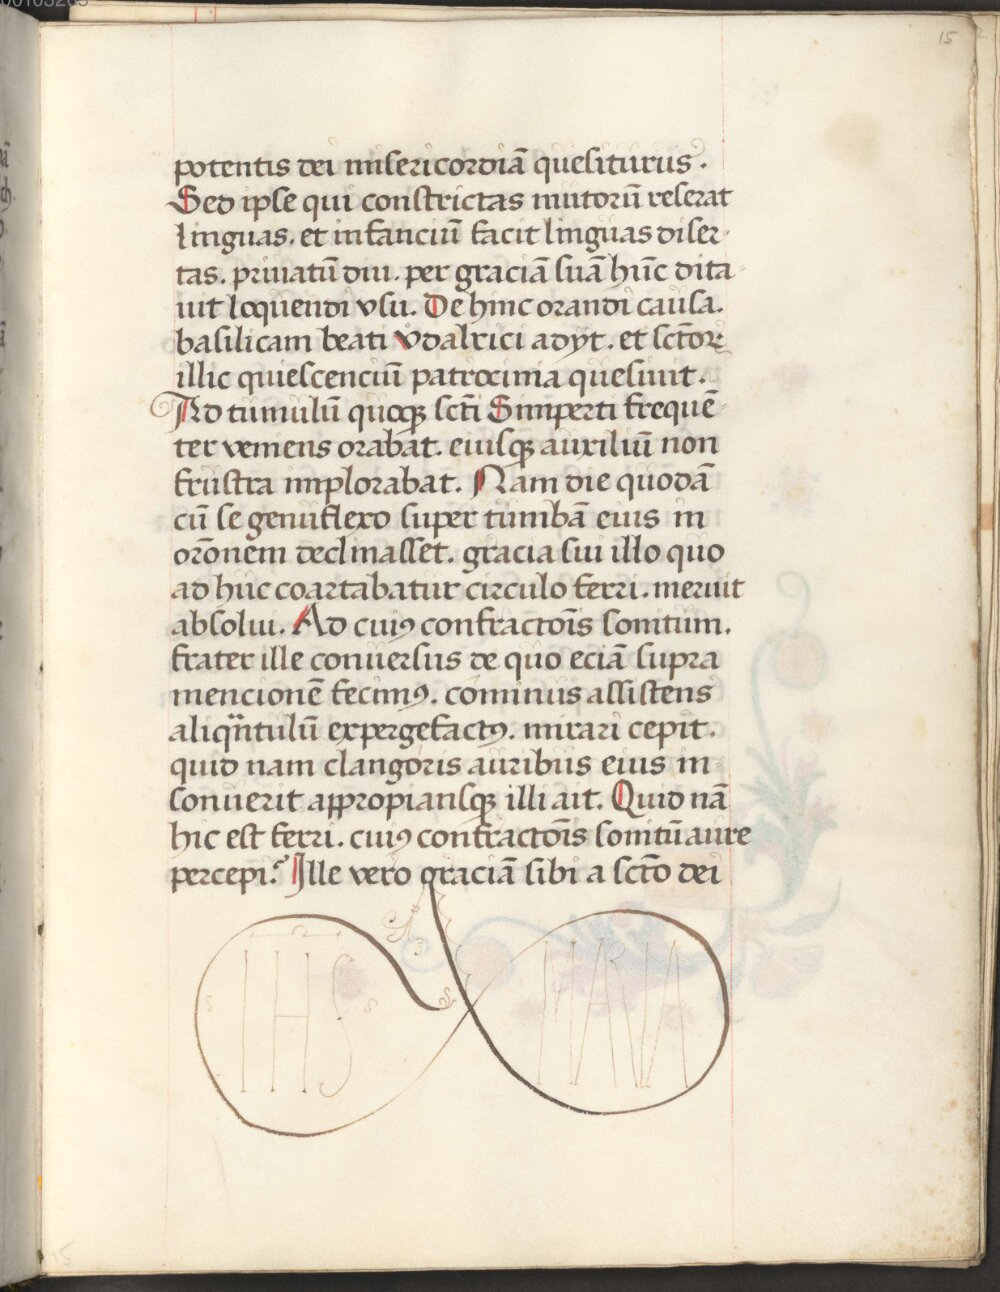 15
potentis dei misericordiā quesiturus.
Sed ipse qui constrictas mutorū reserat
linguas. et infanciū facit linguas diser-
tas. priuatū diu. per graciā suā hūc dita-
uit loquendi vsu. De hinc orandi causa.
basilicam beati Vͦdalrici adÿt. et sctōꝝ
illic quiescenciū patrocinia quesiuit.
Ad tumulū quoqꝫ scti̅ Simperti frequē-
ter veniens orabat. eiusqꝫ auxiliū non
frustra implorabat. Nam die quodā
cū se genuflexo super tumbā eius in
orōnem declinasset. gracia sui illo quo
ad huc coartabatur circulo ferri. meruit
absolui. Ad cuiꝰ confractōis sonitum.
frater ille conuersus de quo eciā supra
mencionē fecimꝰ. cominus assistens
aliqn̄tulū expergefactꝰ. mirari cepit.
quid nam clangoris auribus eius in
sonuerit appropiansqꝫ illi ait. Quid nā
hic est ferri. cuiꝰ confractōis sonitū aure
percepi? Ille vero graciā sibi a sctō dei
IHS MARIA
15